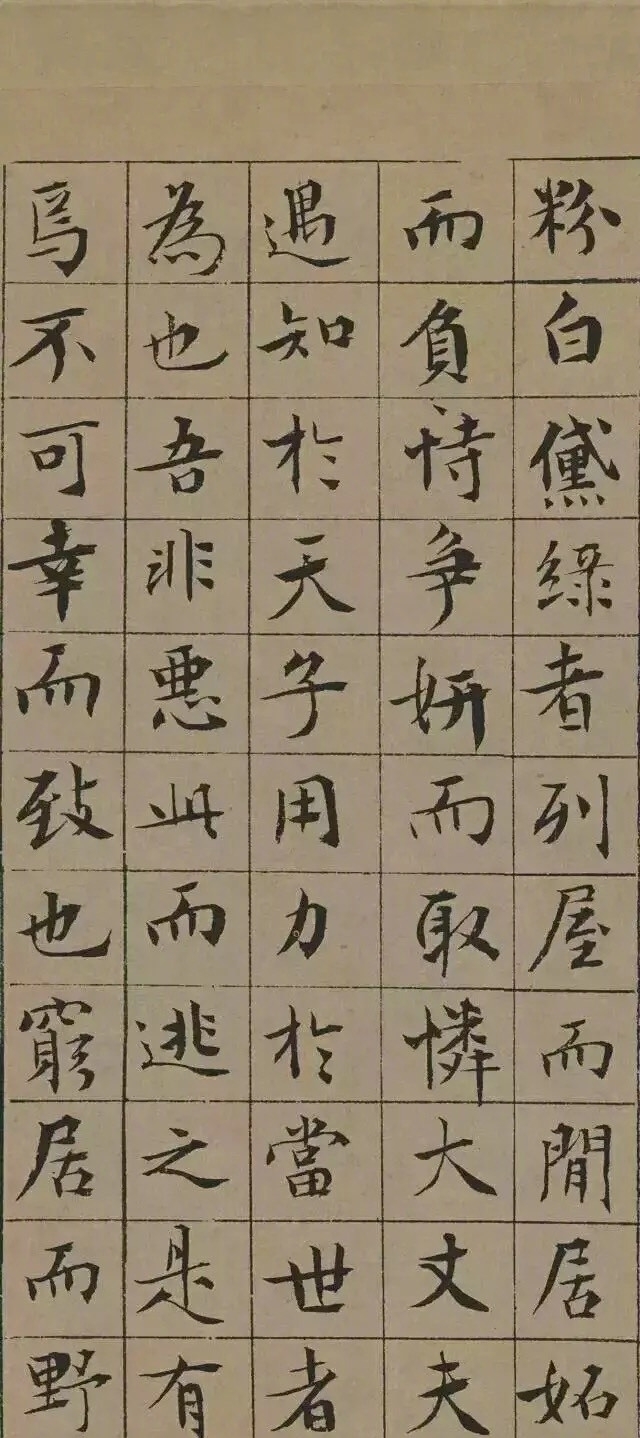 粉白黛綠者列屋而閒居妬
而負恃爭妍而取憐大丈夫
遇知於天子用力於當世者
為也吾非惡此而逃之是有
焉不可幸而致也窮居而野